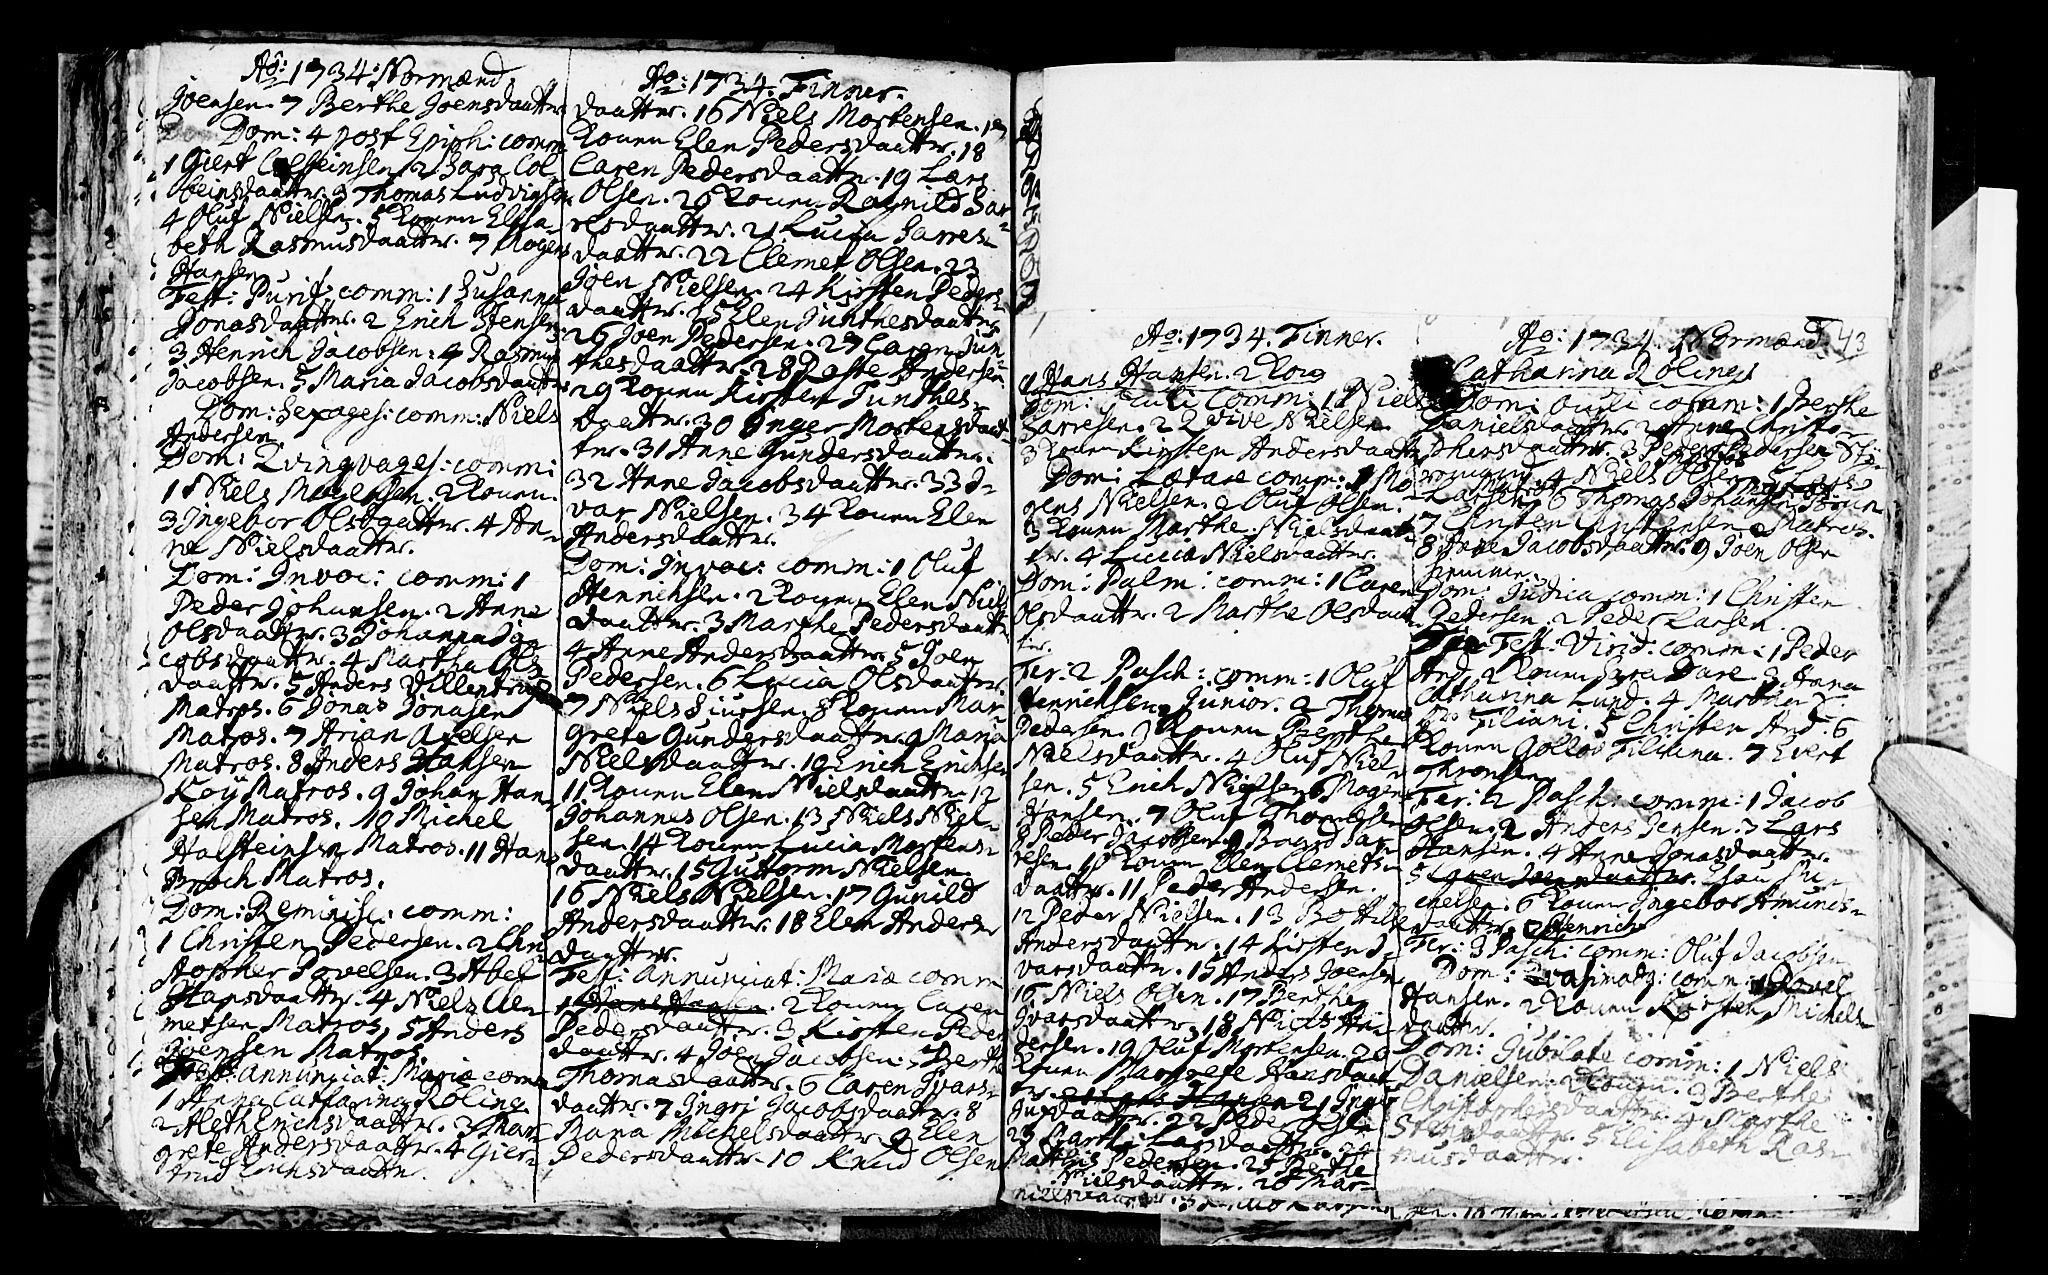 Ao: 1734: Normænd.
Joensen. 7 Berthe Joensdaatter
Dom: 4 post Epiph: comm
1 Giert Colbeinsen 2 Sara Col
beinsdaatter. 3 Thomas Ludvigsen
4 Oluf Nielsen. 5 Konen Elisa-
beth Rasmusdaatter. 7 Mogens
Hansen
Fest: Purif: comm: 1 Susanna
Jonasdaatter. 2 Erich Stensen
3 Henrich Jacobsen. 4 Rasmus
Jacobsen. 5 Maria Jacobsdaatter
Dom: Sexages: comm: Niels
Andersen
Dom: Qvinqvages: comm:
1 Niels Mogensen. 2 Konen.
3 Ingebor Olsdaatter. 4 An-
ne Nielsdaatter.
Dom: Invoc: comm: 1
Peder Johansen. 2 Anne
Olsdaatter. 3 Johanna Ja-
cobsdaatter. 4 Martha Ols
daatter. 5 Anders
Matros. 6 Jonas Jonasen
Matros. 7 Arian Axelsen
Matros. 8 Anders Hansen
Köÿ Matros. 9 Johan Han-
sen Matros. 10 Michel
Halsteinsen Matros. 11 Hans
Broch Matros.
Dom: Reminisc: comm:
1 Christen Pedersen. 2 Chri
stopher Povelsen. 3 Abel
Hansdaatter. 4 Niels Cle-
metsen Matros, 5 Anders
Joensen Matros
Fest: Annunciat: Mariæ comm
1 Anna Catharina Röling
2 Aleth Erichsdaatter. 3 Mar-
grete Andersdaatter. 4 Gier-
trud Erichsdaatter.
Ao: 1734. Finner.
daatter. 16 Niels Mortensen. 17
Konen Elen Pedersdaatter. 18
Caren Pedersdaatter. 19 Lars
Olsen. 20 Konen Ragnild Sar-
resdaatter. 21 Lucia Sarres-
daatter. 22 Clemet Olsen. 23
Joen Nielsen. 24 Kirsten Peders
daatter. 25 Elen Funthesdaatter
26 Joen Pedersen. 27 Caren Fun-
thesdaatter. 28 Raste Andersen
29 Konen Kirsten Funthes-
daatter. 30 Inger Mortensdaat-
ter. 31 Anne Gundersdaatter.
32 Anne Jacobsdaatter. 33 I-
var Nielsen. 34 Konen Elen
Andersdaatter.
Dom: Invoc: comm: 1 Oluf
Henrichsen. 2 Konen Elen Niels
daatter. 3 Marthe Pedersdaatter
4 Anne Andersdaatter. 5 Joen
Pedersen. 6 Lucia Olsdaatter.
7 Niels Siursen. 8 Konen Mar
grete Gundersdaatter. 9 Maria
Nielsdaatter. 10 Erich Erichsen
11 Konen Elen Nielsdaatter 12
Johannes Olsen. 13 Niels Niel-
sen. 14 Konen Lucia Mortens-
daatter. 15 Guttorm Nielsen.
16 Niels Nielsen. 17 Gunild
Andersdaatter. 18 Elen Anders
daatter.
Fest: Annunciat: Mariæ comm
1 Hans Hansen. 2 Konen Caren
Pedersdaatter. 3 Kirsten Peder
daatter. 4 Joen Jacobsen. 5 Berthe
Thomasdaatter. 6 Caren Ivars-
daatter. 7 Ingri Jacobsdaatter. 8
Mana Michelsdaatter 9 Elen
Pedersdaatter. 10 Knud Olsen
Ao: 1734. Finner.
1 Hans Hansen. 2 Kone
Dom: Oculi Comm: 1 Niels
Sarresen. 2 Nielsen
3 Konen Kirsten Andersdaatter
Dom: Lætare comm: 1 Mo-
gens Nielsen. 2 Oluf Olsen.
3 Konen Marthe Nielsdaat-
ter. 4 Lucia Nielsdaatter.
Dom: Palm: comm: 1 Caren
Olsdaatter. 2 Marthe Olsdaat
ter.
Fer: 2 Pasch: comm: 1 Oluf
Henrichsen Junior. 2 Thomas
Pedersen. 3 Konen Berthe
Nielsdaatter. 4 Oluf Niel-
sen. 5 Erich Nielsen 6 Mogens
Hansen. 7 Oluf Thomesen
8 Peder Jacobsen. 9 Baard Sar-
resen. 10 Konen Elen Clemets-
daatter. 11 Peder Andersen.
12 Peder Nielsen. 13 Bothilde
Andersdaatter. 14 Kirsten I-
varsdaatter. 15 Anders Joensen
16 Niels Olsen. 17 Berthe
Ivarsdaatter. 18 Niels An-
dersen. 19 Oluf Mortensen. 20
Konen Margrete Hansdaat
ter. 21 Lars Hansen 21 Inger
daatter. 22 Peder
23 Marthe Larsdaatter. 24
Matthis Pedersen. 25 Berthe
Nielsdaatter. 26 Mar-
Ao: 1734. Normænd. 43
Catharina Röling
Dom: Oculi comm: 1 Berthe
Danielsdaatter 2 Anne Christo-
phersdaatter. 3 Peder Pedersen
4 Niels Olsen
Larsen. 6 Thomas Johansen
7 Christen Christensen Matros.
8 Anne Jacobsdaatter. 9 Joen Olsen
Dom: Judica comm: 1 Christen
Pedersen. 2 Peder Larsen.
Fest: Virid: comm: 1 Peder
And. 2 Konen Sara Dare. 3 Anna
Catharina Lund. 4 Marthe
Filiani. 5 Christen And: 6
Konen Filiana. 7 Evert
Thronsen
Fer: 2 Pasch: comm: 1 Jacob
Olsen. 2 Anders Jensen. 3 Lars
Hansen. 4 Anne Jonasdaatter.
5 Caren Joensdaatter. Esau Mi-
chelsen. 6 Konen Ingebor Amunds-
daatter. 7 Henrich
Fer: 3 Pasch: comm: Oluf Jacobsen
Dom: Qvasimodog: comm: 1 Povel
Hansen. 2 Konen Kirsten Michels-
daatter.
Dom: Jubilate comm: 1 Niels
Danielsen. 2 Konen. 3 Berthe
Christophersdaatter. 4 Marthe
Stensdaatter. 5 Elisabeth Ras-
musdaatter.